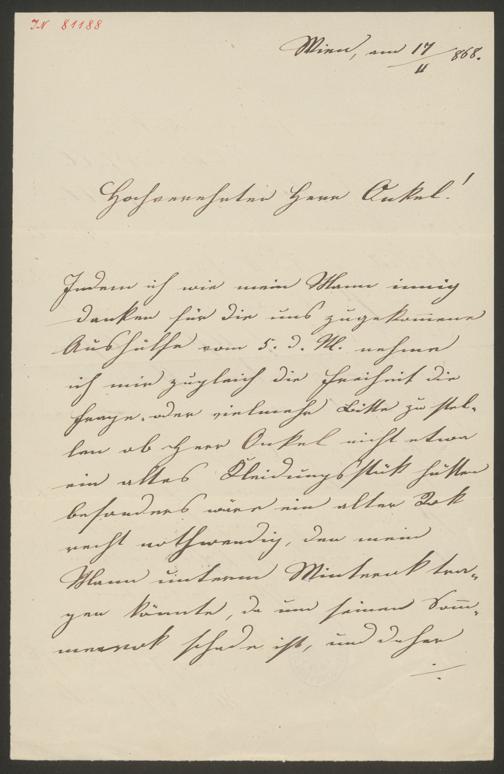 JN 81188
Wien, am 17/11 868.
Hochverehrter Herr Onkel!
Indem ich wie mein Mann innig
danken für die uns zugekommene
Aushülfe vom 5. d. M. nehme
ich mir zugleich die Freiheit die
Frage, oder vielmehr Bitte zu stel-
len ob Herr Onkel nicht etwa
ein altes Kleidungsstük hätten
besonders wäre ein alter Rok
recht nothwendig, den mein
Mann unterm Winterrok tra-
gen könnte, da um seinen Som-
merrok schade ist, und daher
./.